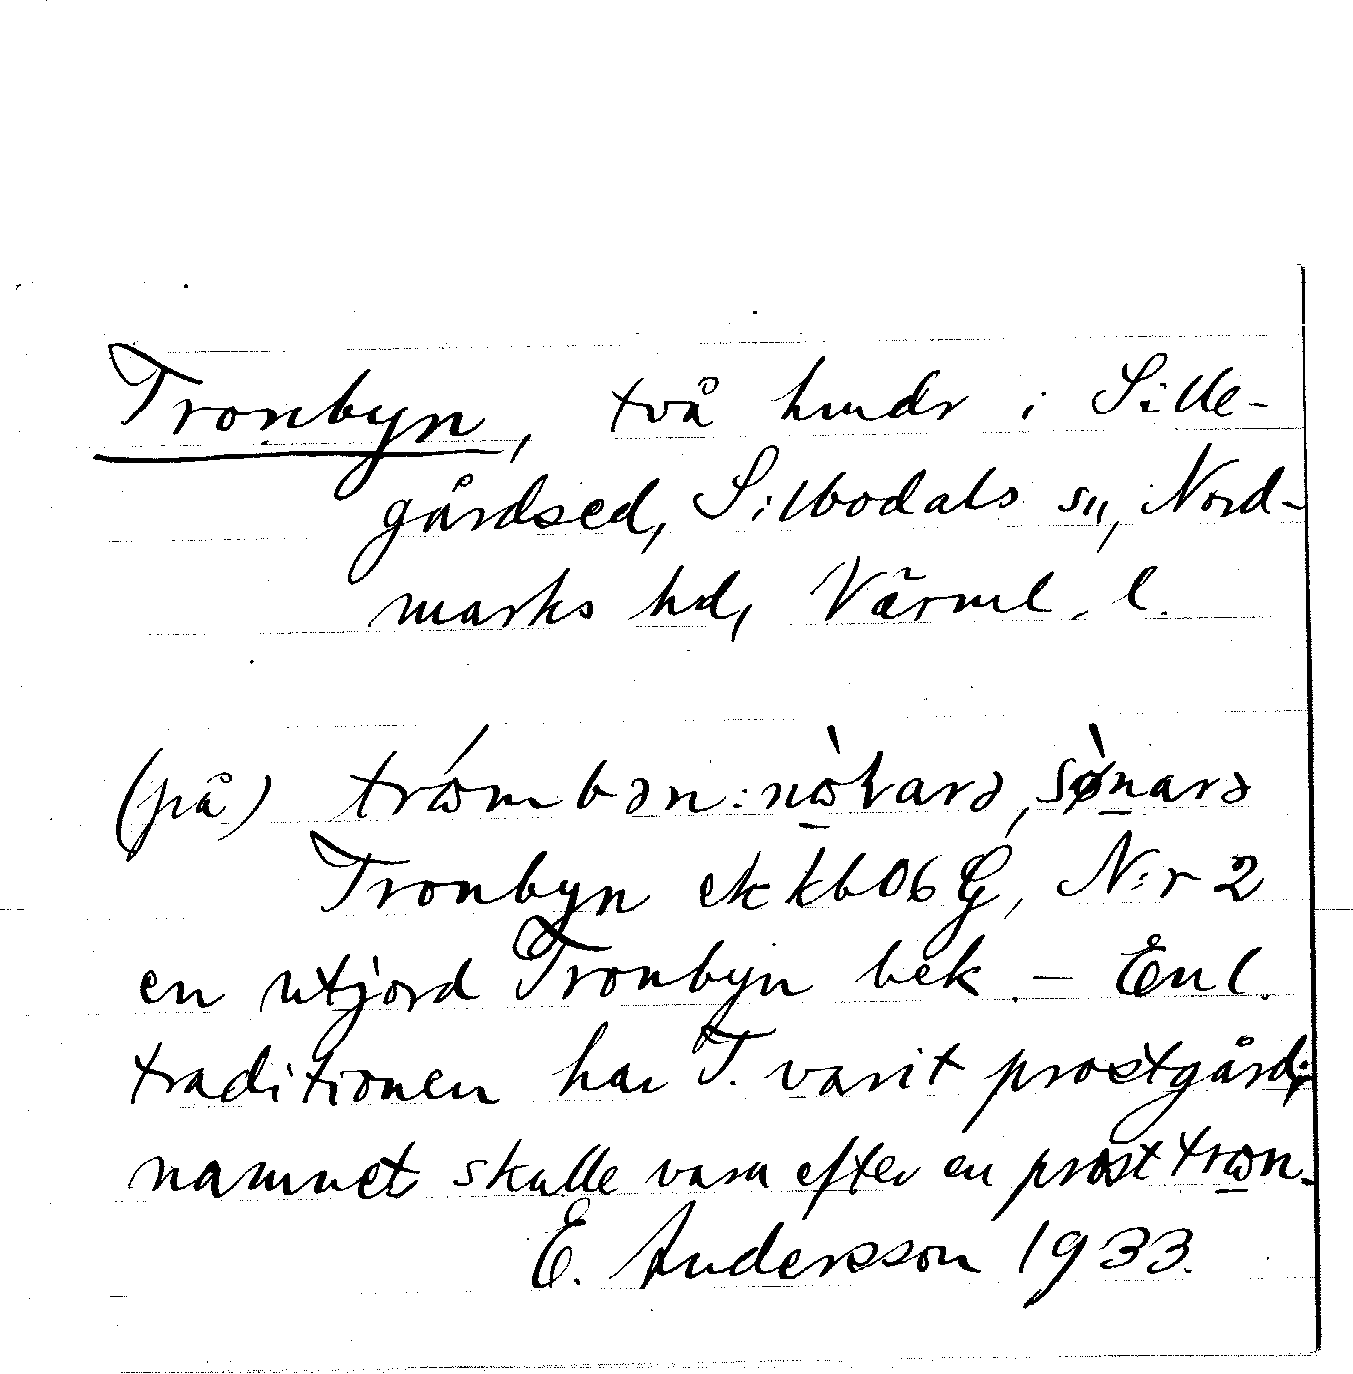 Tronbyn, två hmdr i Sille-
gårdsed, Silbodals sn, Nord-
marks hd, Värml. l.
(på) trɷ́mbən: nɷ̀r̲arə, sø̀n̲arə
Tronbyn ek kb06 G, N:r 2
en utjord Tronbyn bek. – Enl.
traditionen har T. varit prostgård;
namnet skulle vara efter en prost trɷn̲.
E. Andersson 1933.